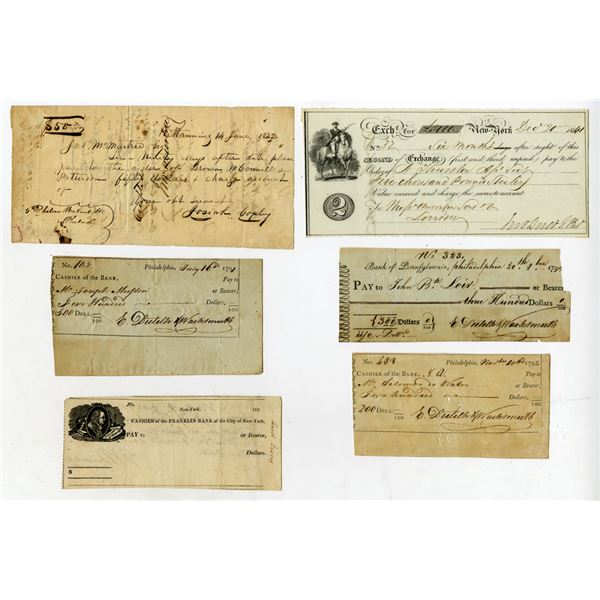 $50
Manning 14 June, 1842
Jas McMurtrie
Sir - Ninety days after date please
pay to the order of Brown McConnell
Patterson fifty dollars & charge account
of
Your obt servant
Josiah Copley
Exch. for £5000 New-York Dec 20 1841
No
Six Months days after sight of this
SECOND of Exchange, first and third unpaid, pay to the
Order of
Five thousand Pounds Sterling
Value received and charge the same to account
To Messrs Morrison Sons & Co
London
2
No. 102 Philadelphia, July 16th 1791
CASHIER OF THE BANK, Pay to
Mr Joseph or Bearer,
Five Hundred Dollars
500 DOLL. /100 E. Dutilh & Wachsmuth
No. 323.
Bank of Pennsylvania, philadelphia 20th 179
PAY TO John Bte or Bearer
three Hundred Dollars 0/100
$300 Dollars 0/100 E. Dutilh & Wachsmuth
No. 483 Philadelphia, 1792
CASHIER OF THE BANK, N. A. Pay to
Mr Solomon or Bearer,
Two hundred Dollars
200 DOLL. /100 E. Dutilh & Wachsmuth
No.
New-York, 182
CASHIER OF THE FRANKLIN BANK of the City of New-York,
PAY TO or Bearer,
Dollars.
$